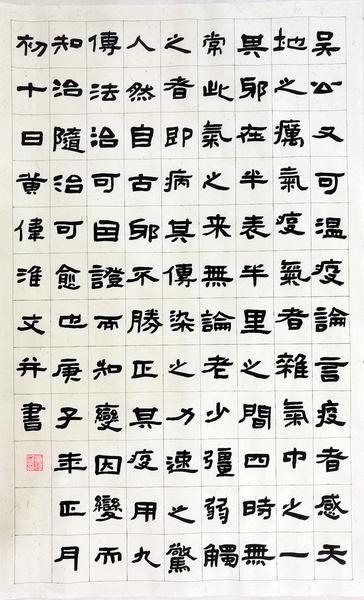 吴公又可温疫論言疫者感天
地之癘氣疫氣者雜氣中之一
異邪在半表半里之間四時無
常此氣之来無論老少彊弱觸
之者即病其傳染之力速之驚
人然自古邪不勝正其疫用九
傳法治可由證而知變因變而
知治隨治可愈也庚子年正月
初十日黄偉淮文并書